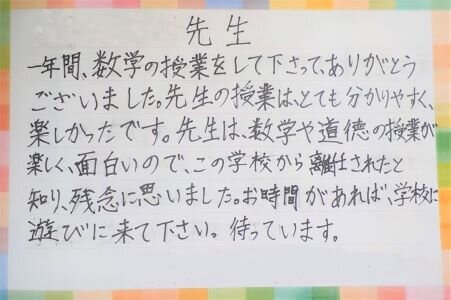 先生
一年間、数学の授業をして下さって、ありがとう
ございました。先生の授業は、とても分かりやすく、
楽しかったです。先生は、数学や道徳の授業が
楽しく、面白いので、この学校から離任されたと
知り、残念に思いました。お時間があれば、学校に
遊びに来て下さい。待っています。